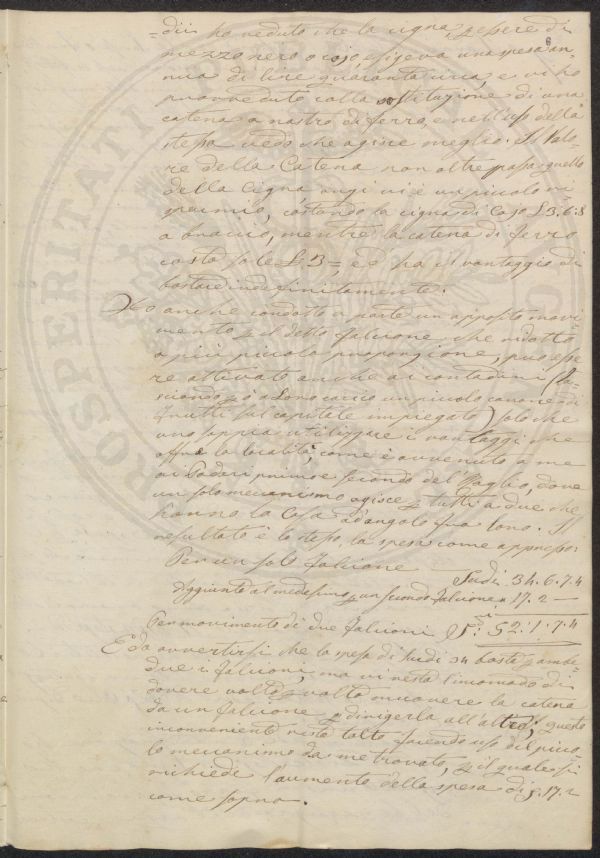 =dii ho veduto che la cigna, per essere di
mezzo nero o cojo, esigeva una spesa an=
nua di lire quaranta circa, e vi ho
provveduto colla sostituzione di una
catena a nastro di ferro, e nell'uso della
stessa vedo che agisce meglio. Il Valo=
re della Catena non oltrepassa quello
della Cigna anzi vi è un piccolo ri=
sparmio, costando la cigna di Cojo £ 3.6.8
a braccio, mentre la catena di ferro
costa sole £ 3=, ed ha il vantaggio di
bastare indefinitamente.
Ho anche condotto a parte un apposito movi=
mento per il detto Falcione che ridotto
a più piccola proporzione, può esse
re attivato anche ai contadini (la=
sciando a Loro carico un piccolo canone di
frutti sul capitale impiegato) solo che
uno sappia utilizzare i vantaggi che
offre la località, come è avvenuto a me
ai Poderi primo e secondo del Paglio, dove
un solo meccanismo agisce per tutti a due che
hanno la Casa ad angolo fra loro. Il
resultato è lo stesso, la spesa come appresso
Per un solo Falcione Scudi 34.6.7.4
Aggiunto al medesimo per un secondo Falcione " 17.2 —
Per movimento di due Falcioni S.di 52.1.7.4
È da avvertirsi che la spesa di Scudi 34 basta per ambi=
due i Falcioni, ma vi resta l'incomodo di
dovere volta per volta muovere la catena
da un Falcione per dirigerla all'altro; questo
inconveniente resta tolto facendo uso del picco=
lo meccanismo da me trovato, per il quale si
richiede l'aumento della spesa di S. 17.2
come sopra.